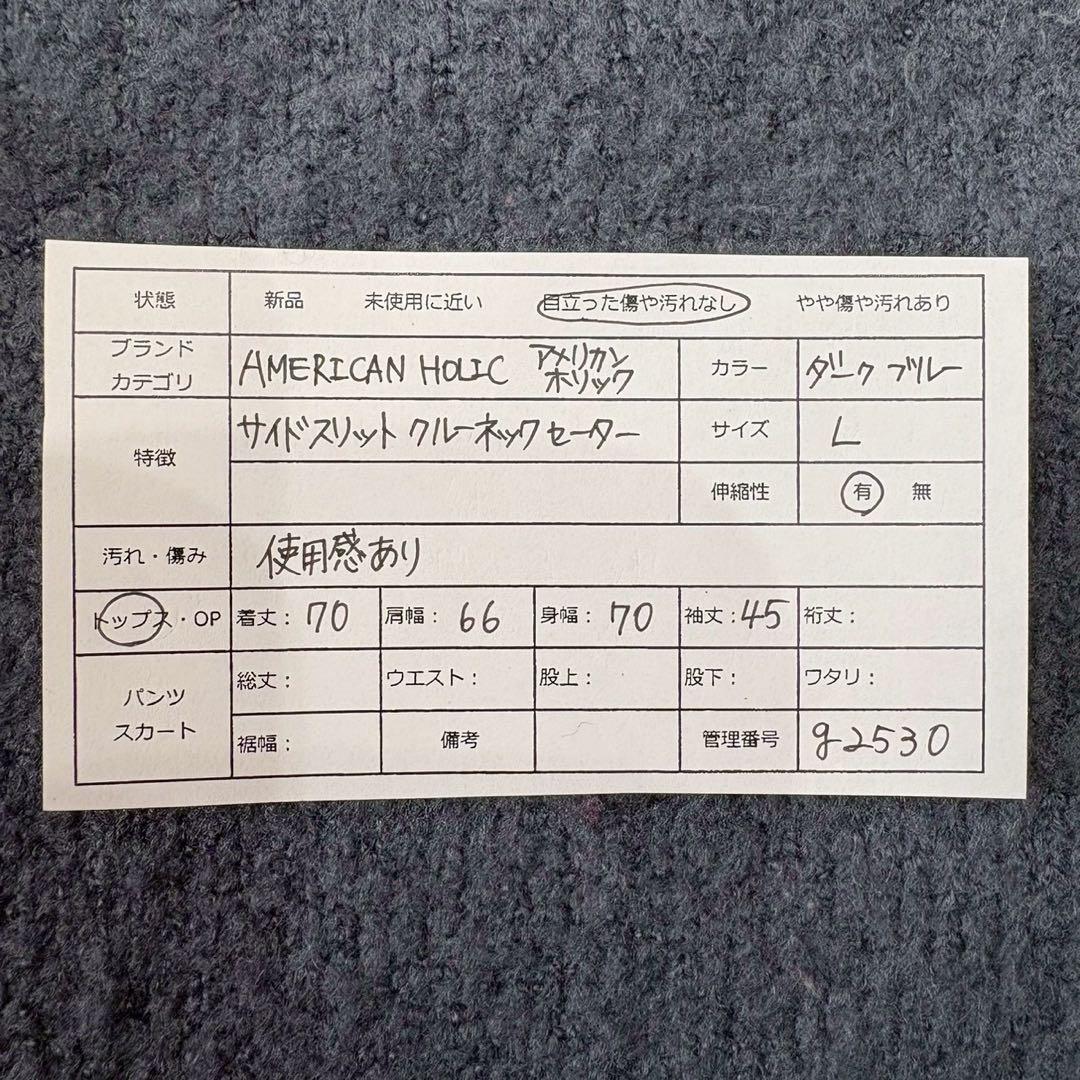 状態 新品 未使用に近い 目立った傷や汚れなし やや傷や汚れあり
ブランド
カテゴリ
AMERICAN HOLIC アメリカン
ホリック
カラー ダークブルー
特徴 サイドスリット クルーネックセーター
サイズ L
伸縮性 有 無
汚れ・傷み 使用感あり
トップス・OP 着丈：70 肩幅：66 身幅：70 袖丈：45 裄丈：
パンツ
スカート
総丈： ウエスト： 股上： 股下： ワタリ：
裾幅： 備考 管理番号 g2530